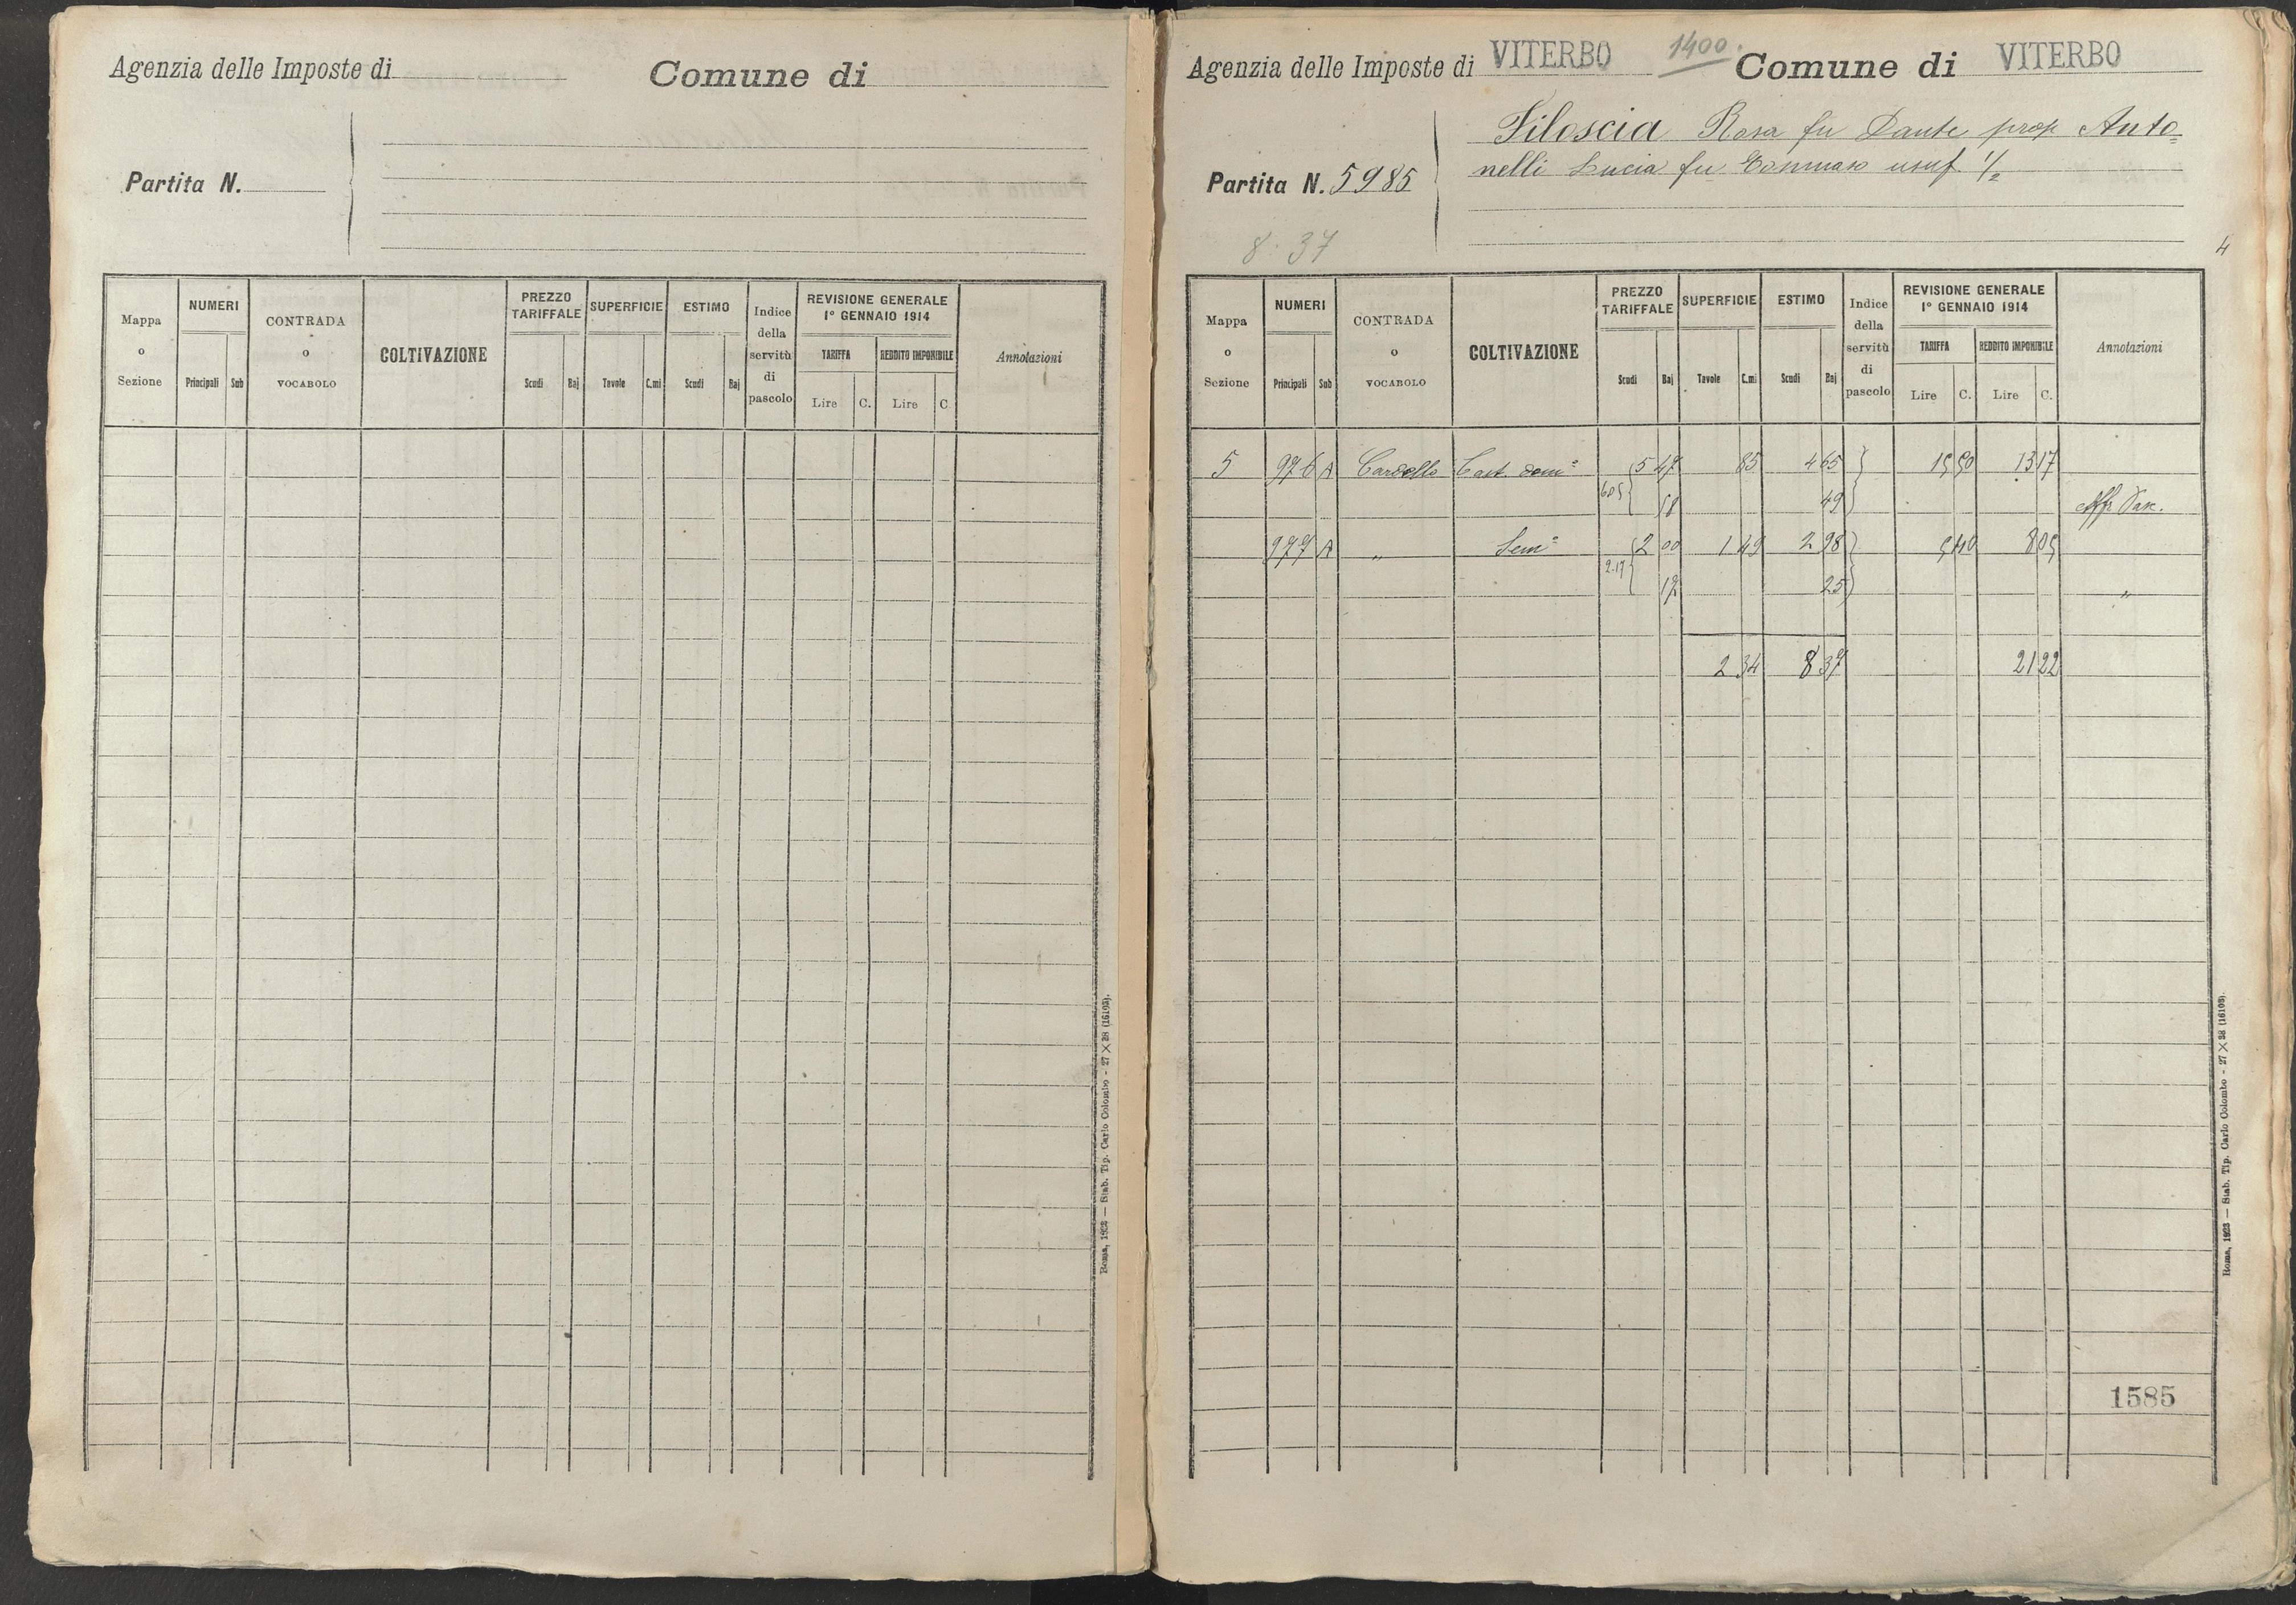 Agenzia delle Imposte di Comune di
Partita N.
Mappa o Sezione NUMERI Principali Sub CONTRADA o VOCABOLO COLTIVAZIONE PREZZO TARIFFALE Scudi Baj SUPERFICIE Tavole C.mi ESTIMO Scudi Baj Indice della servitù di pascolo REVISIONE GENERALE 1° GENNAIO 1914 TARIFFA Lire C. REDDITO IMPONIBILE Lire C. Annotazioni
Roma, 1923 — Stab. Tip. Carlo Colombo - 27 X 38 (16103).
Agenzia delle Imposte di VITERBO 1400. Comune di VITERBO
Filoscia Rosa fu Dante prop Anto=
nelli Lucia fu Tommaso usuf. 1/2
Partita N. 5985
8.37
4
Mappa o Sezione NUMERI Principali Sub CONTRADA o VOCABOLO COLTIVAZIONE PREZZO TARIFFALE Scudi Baj SUPERFICIE Tavole C.mi ESTIMO Scudi Baj Indice della servitù di pascolo REVISIONE GENERALE 1° GENNAIO 1914 TARIFFA Lire C. REDDITO IMPONIBILE Lire C. Annotazioni
5 976 A Cast. dom° 5 47 85 4 65 15 50 13 17
6 05 58 49 Aff. Pasc.
977 A " Sem° 2 00 1 49 2 98 5 40 8 05
2.17 17 25 "
2 34 8 37 21 22
1585
Roma, 1923 — Stab. Tip. Carlo Colombo - 27 X 38 (16103).